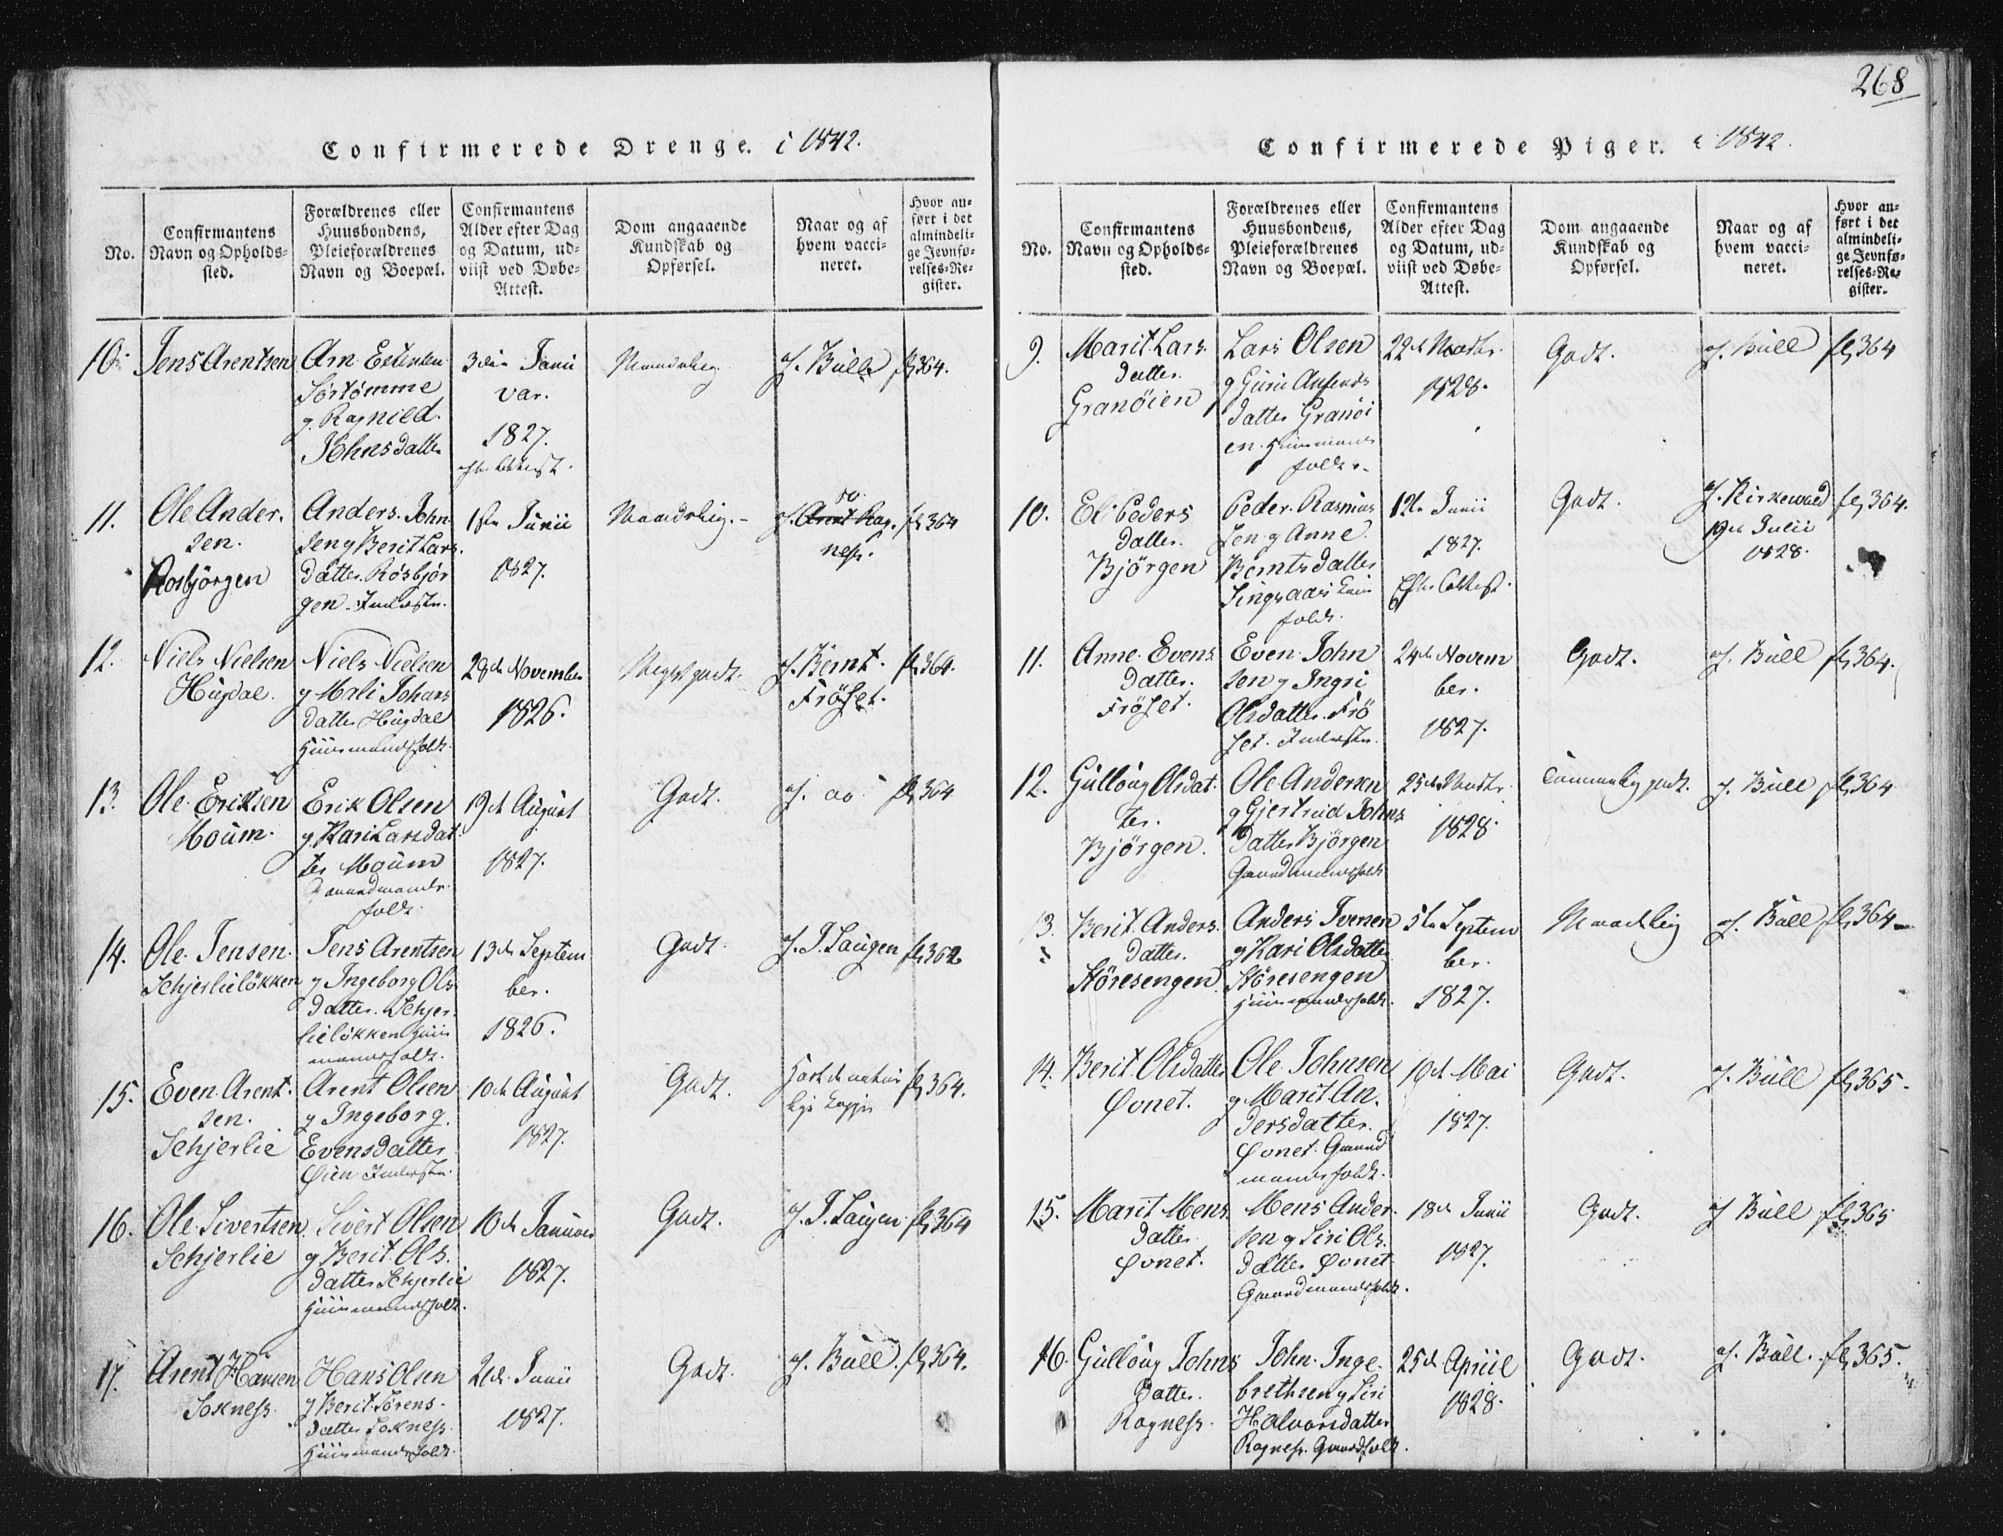 268
Confirmerede Drenge. i 1842.
No.
Confirmantens
Navn og Opholds-
sted.
Forældrenes eller
Huusbondens,
Pleieforældrenes
Navn og Boepæl.
Confirmantens
Alder efter Dag
og Datum, ud-
viist ved Døbe-
Attest.
Dom angaaende
Kundskab og
Opførsel.
Naar og af
hvem vacci-
neret.
Hvor an-
ført i det
almindeli-
ge Jevnfø-
relses-Re-
gister.
10. Jens Arentsen
Arn Estensen
Sørtømme
g. Ragnild
Johnsdatter
3die
1827.
Maadelig.
af. Bull
fl 364.
11. Ole Ander-
sen.
Rosbjørgen
Anders John
sen g Berit Lars
datter Røsbjør
gen. Inderstr.
1ste Junii
1827.
Maadelig.
fl 364
12. Niels Nielsen
Hugdal.
Niels Nielsen
g Mali Johans
datter Hugdal
Huusmandsfolk.
28de November
1826.
Meget godt.
af. Bernt
Frøset.
fl 364.
13. Ole Eriksen
Moum.
Erik Olsen
g Kari Larsdat
ter Moum
Gaardmands
folk.
19de August
1827.
Godt.
af. do
fl 364
14. Ole Jensen
Schjerlieløkken
Jens Arentsen
g Ingeborg Ols
datter Schjer
lieløkken Huus
mandsfolk.
13de Septem
ber.
1826.
Godt.
af. J. Langen
fl 362
15. Even Arent
sen.
Schjerlie
Arent Olsen
g Ingeborg
Evensdatter
Øien Inderstr.
10de August
1827.
Godt.
Havt de natur
lige Kopper
fl 364.
16. Ole Sivertsen
Schjerlie
Sivert Olsen
g Berit Ols
datter Schjerlie
Huusmandsfolk.
10de Januar
1827.
Godt.
af. J. Langen
fl 364
17. Arent Hansen
Sokness.
Hans Olsen
g Berit Sørens
datter Sokness
Huusmandsfolk.
2de Junii
1827.
Godt.
af. Bull.
fl 364.
Confirmerede Piger. i 1842.
No.
Confirmantens
Navn og Opholds-
sted.
Forældrenes eller
Huusbondens,
Pleieforældrenes
Navn og Boepæl.
Confirmantens
Alder efter Dag
og Datum, ud-
viist ved Døbe-
Attest.
Dom angaaende
Kundskab og
Opførsel.
Naar og af
hvem vacci-
neret.
Hvor an-
ført i det
almindeli-
ge Jevnfø-
relses-Re-
gister.
9. Marit Lars
datter.
Granøien
Lars Olsen
g Guru
datter Granøi
en. Huusmands
folk.
22de Marts
1828.
Godt.
af. Bull
fl 364
10. Eli Peders
datter.
Bjørgen
Peder Rasmus
sen g Anne
Berntsdatter
Singsaas
folk.
12te Junii
1827.
Efter Attest.
Godt.
af. Kirkevold
19de Julii
1828.
fl 364.
11. Anne Evens
datter.
Frøset.
Even John
sen g Ingri
Olsdatter Frø
set. Inderstr.
24de Novem
ber.
1827.
Godt.
af. Bull
fl 364.
12. Gulloug Olsdat
ter.
Bjørgen.
Ole Andersen
g Gjertrud Johns
datter Bjørgen
Gaardmandsfolk
25de Marts
1828.
Temmelig godt.
af. Bull
fl 364
13. Berit Anders
datter.
Støresengen
Anders Ivensen
g Kari Olsdatter
Støresengen
Huusmandsfolk.
5te Septem
ber.
1827.
Maadelig
af. Bull
fl 364
14. Berit Olsdatter
Øvnet.
Ole Johnsen
g Marit An
dersdatter.
Øvnet. Gaard
mandsfolk.
10de Mai
1827.
Godt.
af. Bull
fl 365.
15. Marit Mens
datter
Øvnet.
Mens Ander
sen g Siri Ols
datter Øvnet
Gaardmandsfolk.
18de Junii
1827.
Godt.
af Bull
fl 365
16. Gulloug Johns
datter.
Rogness.
John Inge
brethsen g Siri
Halvorsdatter
Rogness. Gaardfolk.
25de April
1828.
Godt.
af. Bull.
fl 365.